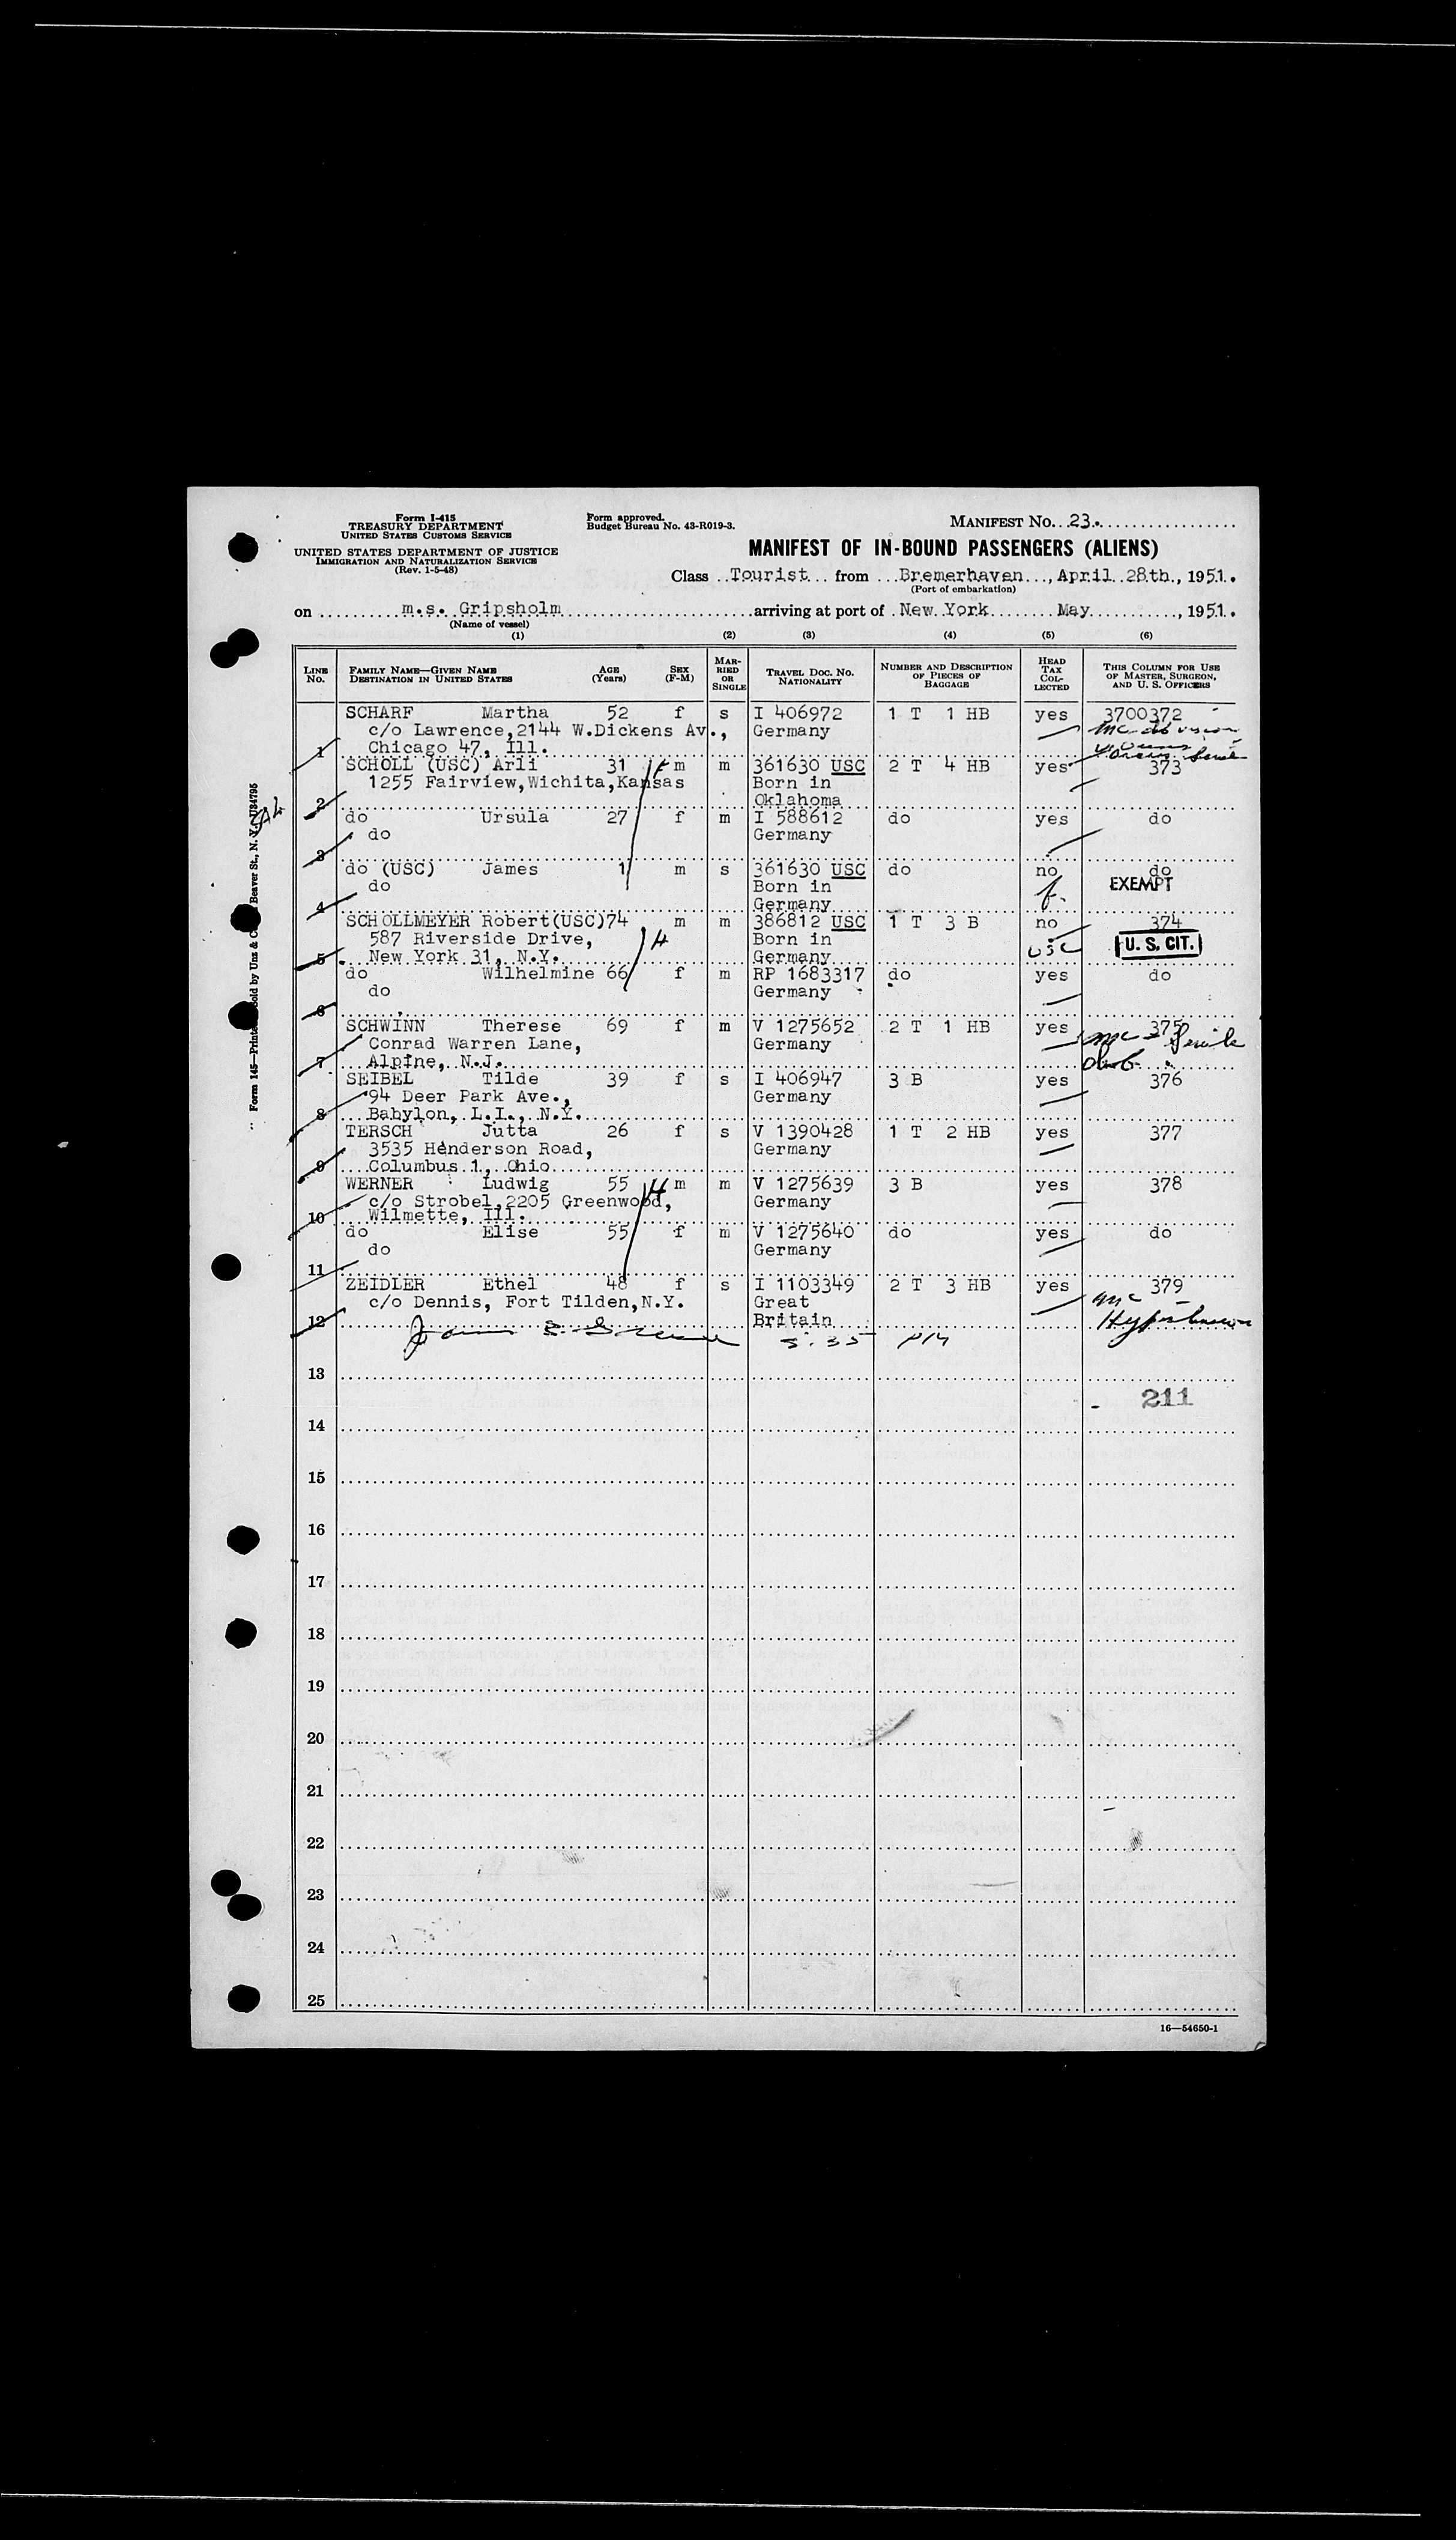 Form I-415
TREASURY DEPARTMENT
UNITED STATES CUSTOMS SERVICE
UNITED STATES DEPARTMENT OF JUSTICE
IMMIGRATION AND NATURALIZATION SERVICE
(Rev. 1-5-48)
Form approved.
Budget Bureau No. 43-R019-3.
MANIFEST No. 23.
MANIFEST OF IN-BOUND PASSENGERS (ALIENS)
Class Tourist from Bremerhaven, April 28th, 1951.
(Port of embarkation)
on m.s. Gripsholm arriving at port of New York May, 1951.
(Name of vessel)
(1) (2) (3) (4) (5) (6)
LINE No. FAMILY NAME—GIVEN NAME DESTINATION IN UNITED STATES AGE (Years) SEX (F-M) MARRIED OR SINGLE TRAVEL DOC. NO. NATIONALITY NUMBER AND DESCRIPTION OF PIECES OF BAGGAGE HEAD TAX COLLECTED THIS COLUMN FOR USE OF MASTER, SURGEON, AND U. S. OFFICERS
SCHARF Martha 52 f s I 406972 1 T 1 HB yes 3700372
c/o Lawrence,2144 W.Dickens Av., Germany
1 Chicago 47, Ill.
SCHOLL (USC) Arli 31 m m 361630 USC 2 T 4 HB yes 373
1255 Fairview,Wichita,Kansas Born in
2 Oklahoma
do Ursula 27 f m I 588612 do yes do
do Germany
3
do (USC) James 1 m s 361630 USC do no do
do Born in EXEMPT
4 Germany
SCHOLLMEYER Robert(USC)74 m m 386812 USC 1 T 3 B no 374
587 Riverside Drive, Born in USC U. S. CIT.
5 New York 31, N.Y. Germany
do Wilhelmine 66 f m RP 1683317 do yes do
do Germany
6
SCHWINN Therese 69 f m V 1275652 2 T 1 HB yes 375
Conrad Warren Lane, Germany
7 Alpine, N.J.
SEIBEL Tilde 39 f s I 406947 3 B yes 376
94 Deer Park Ave., Germany
8 Babylon, L.I., N.Y.
TERSCH Jutta 26 f s V 1390428 1 T 2 HB yes 377
3535 Henderson Road, Germany
9 Columbus 1, Ohio
WERNER Ludwig 55 m m V 1275639 3 B yes 378
c/o Strobel,2205 Greenwood, Germany
10 Wilmette, Ill.
do Elise 55 f m V 1275640 do yes do
do Germany
11
ZEIDLER Ethel 48 f s I 1103349 2 T 3 HB yes 379
c/o Dennis, Fort Tilden,N.Y. Great
12 Britain
13
211
14
15
16
17
18
19
20
21
22
23
24
25
16—54650-1